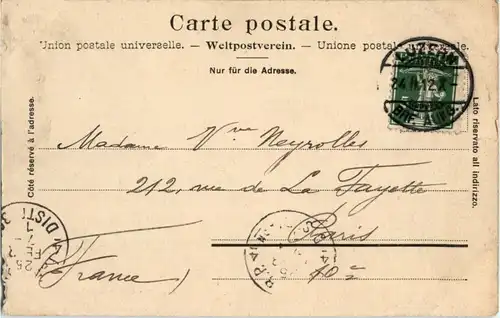 Carte postale.
Union postale universelle. — Weltpostverein. — Unione postale universale.
Nur für die Adresse.
Côté réservé à l'adresse.
Lato riservato all indirizzo.
LUZERN
24.II.12.X
BRF. AUFG.
Madame Vve Neyrolles
212, rue de La Fayette
Paris
(France) 10e
DISTR
25